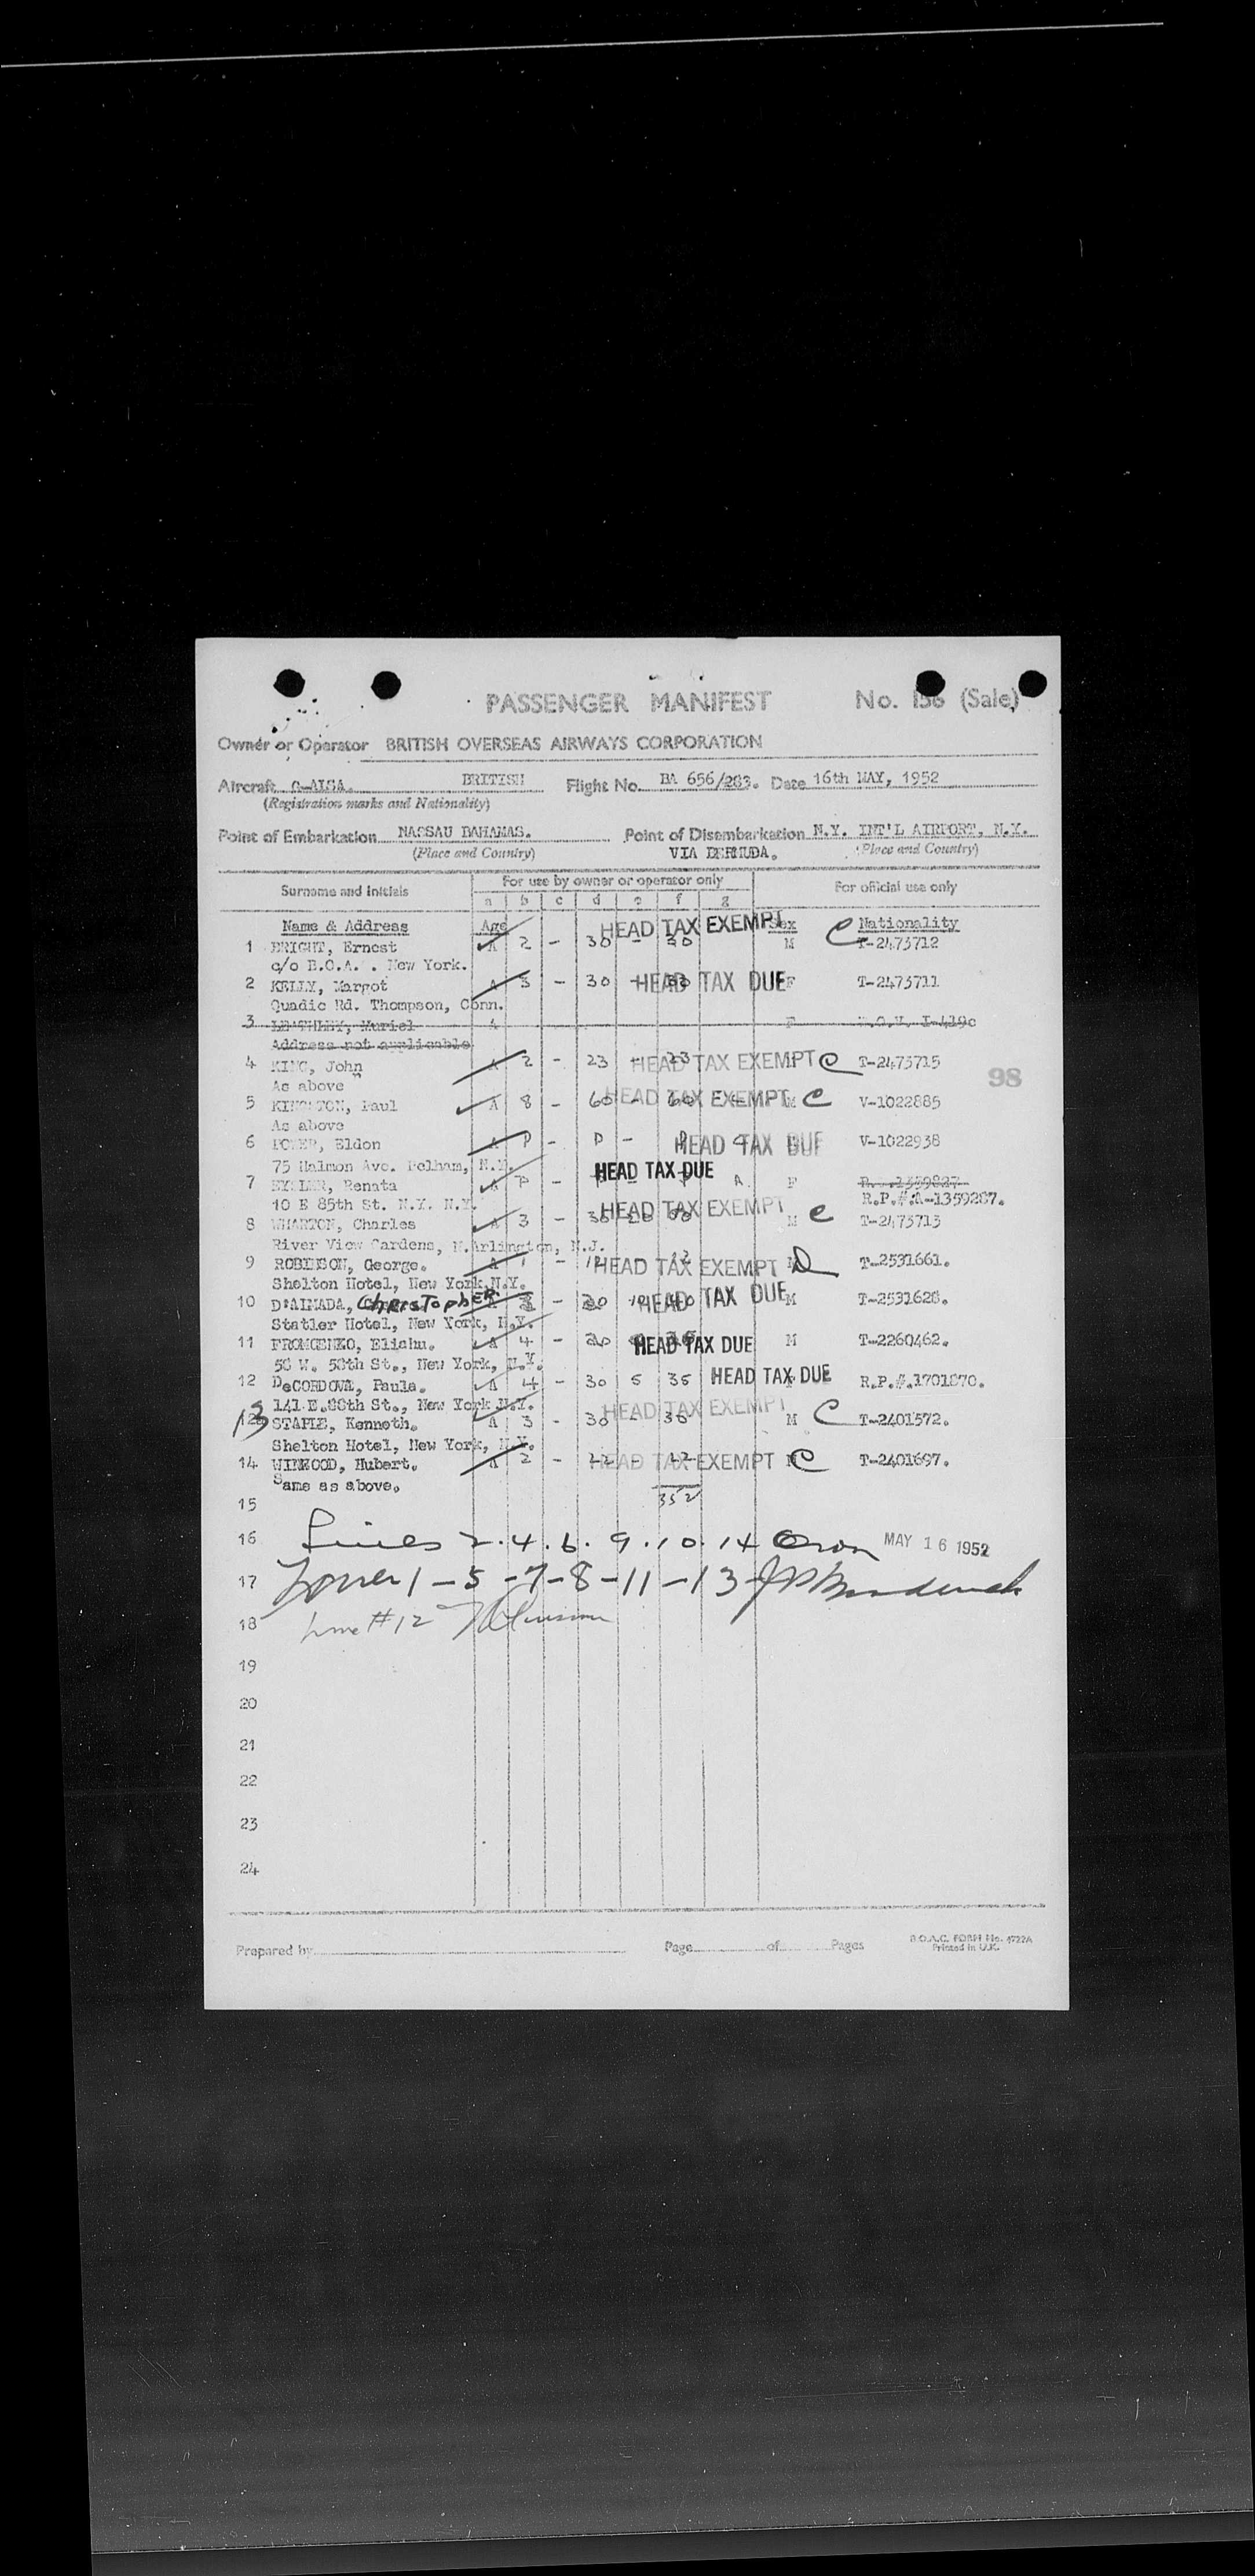 PASSENGER MANIFEST No. 156 (Sale)
Owner or Operator BRITISH OVERSEAS AIRWAYS CORPORATION
Aircraft G-ALSA. BRITISH Flight No. BA 656/283. Date 16th MAY, 1952
(Registration marks and Nationality)
Point of Embarkation NASSAU BAHAMAS. Point of Disembarkation N.Y. INT'L AIRPORT, N.Y.
(Place and Country) VIA BERMUDA. (Place and Country)
Surname and Initials For use by owner or operator only For official use only
a b c d e f g
Name & Address Age HEAD TAX EXEMPT Sex C Nationality
1 BRIGHT, Ernest A 2 - 30 - 30 M T-2473712
c/o B.O.A. . New York.
2 KELLY, Margot A 3 - 30 - HEAD TAX DUE F T-2473711
Quadic Rd. Thompson, Conn.
3 LEATHLEY, Muriel A F I-419c
Address not applicable
4 KING, John A 2 - 23 - 23 HEAD TAX EXEMPT C T-2473715
As above 98
5 KINGSTON, Paul A 8 - 60 - 60 HEAD TAX EXEMPT M C V-1022885
As above
6 Eldon A P - P - P HEAD TAX DUE V-1022938
75 Halmon Ave. Pelham, N.Y.
7 Renata A P - HEAD TAX DUE A F
10 E 85th St. N.Y. N.Y. R.P.#.A-1359287.
8 WHARTON, Charles A 3 - 30 HEAD TAX EXEMPT M C T-2473713
River View Gardens, N.Arlington, N.J.
9 ROBINSON, George. A 1 - 12 12 HEAD TAX EXEMPT D T-2531661.
Shelton Hotel, New York, N.Y.
10 D'AIMADA, Christopher A 3 - 30 10 40 HEAD TAX DUE M T-2531628.
Statler Hotel, New York, N.Y.
11 FROMCENKO, Eliahu. A 4 - 20 HEAD TAX DUE M T-2260462.
58 W. 58th St., New York, N.Y.
12 DeCORDOVA, Paula. A 4 - 30 5 35 HEAD TAX DUE R.P.#.1701870.
141 E.88th St., New York N.Y.
13 STAPLE, Kenneth. A 3 - 30 - 30 HEAD TAX EXEMPT M C T-2401572.
Shelton Hotel, New York, N.Y.
14 WINWOOD, Hubert. A 2 - 42 - 42 HEAD TAX EXEMPT M C T-2401697.
Same as above.
15 352
16 Lines 2.4.6.9.10.14 MAY 16 1952
17 1-5-7-8-11-13
18 Line #12
19
20
21
22
23
24
Prepared by Page of Pages B.O.A.C. FORM No. 4722A
Printed in U.K.